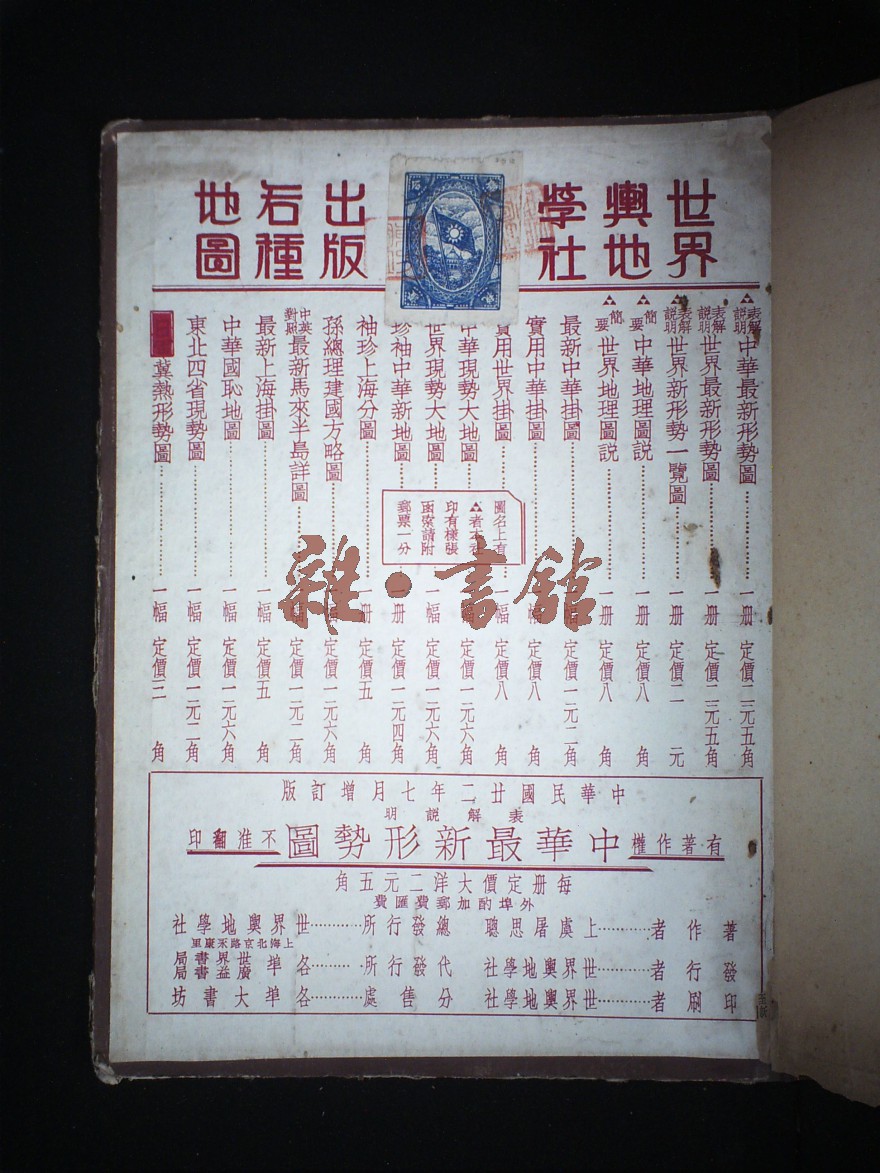 世界輿地學社
出版各種地圖
表解說明 中華最新形勢圖 一册 定價二元五角
表解說明 世界最新形勢圖 一册 定價二元五角
表解說明 世界新形勢一覽圖 一册 定價二元
簡要 中華地理圖説 一册 定價八角
簡要 世界地理圖説 一册 定價八角
最新中華掛圖 一幅 定價一元二角
實用中華掛圖 一幅 定價八角
實用世界掛圖 一幅 定價八角
中華現勢大地圖 一幅 定價一元六角
世界現勢大地圖 一幅 定價一元六角
珍袖中華新地圖 一册 定價一元四角
袖珍上海分圖 一册 定價五角
孫總理建國方略圖 一幅 定價一元六角
中英對照 最新馬來半島詳圖 一幅 定價一元二角
最新上海掛圖 一幅 定價五角
中華國恥地圖 一幅 定價一元六角
東北四省現勢圖 一幅 定價一元二角
冀熱形勢圖 一幅 定價三角
圖名上有
▲者本社
印有樣張
函索請附
郵票一分
雜·書館
中華民國廿二年七月增訂版
表解說明
有著作權 中華最新形勢圖 不准翻印
每册定價大洋二元五角
外埠酌加郵費匯費
著作者 上虞屠思聰 總發行所 世界輿地學社
上海北京路永康里
發行者 世界輿地學社 代發行所 各埠 世界書局 廣益書局
印刷者 世界輿地學社 分售處 各埠大書坊